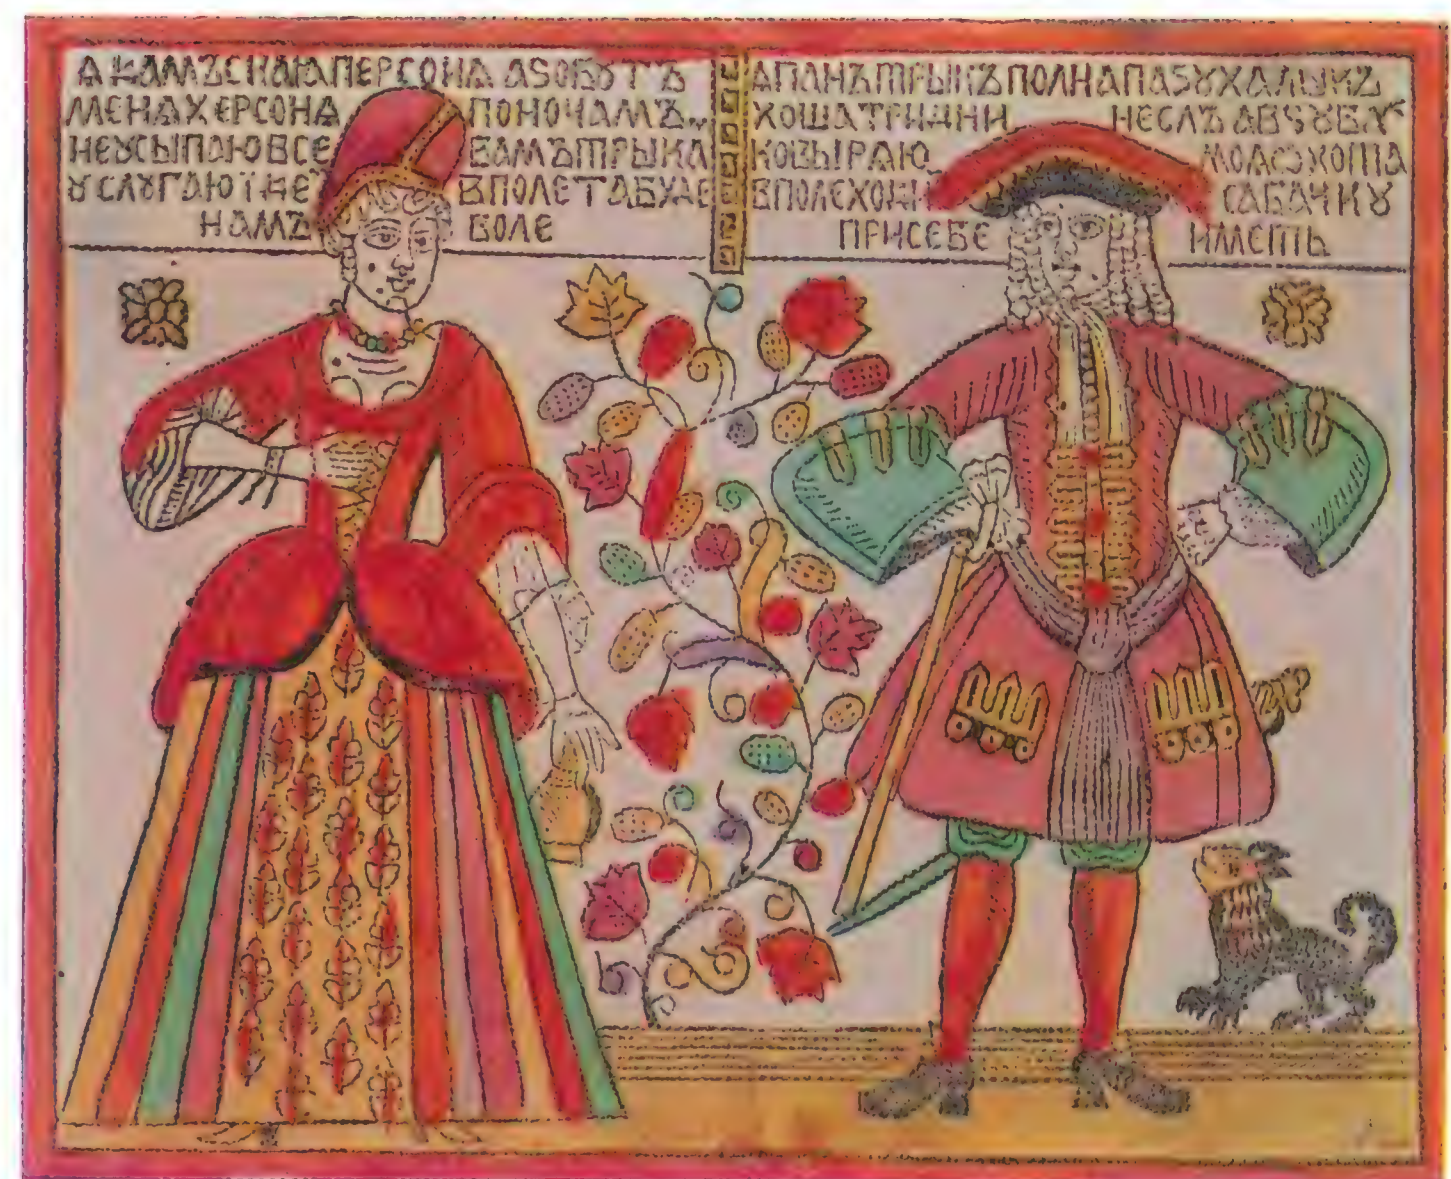 Ѧ КАМЪСНАѦПЕРСОНА АЅОВꙋТЪ
МЕНѦХЕРСОНѦ ПОНОЧАМЪ
НЕꙋСЫПАЮВСЕ ВАМЪТРЫКА
ꙋСЛꙋГАЮ ІНЕ ВПОЛЕТАБꙋДЕ
НАМЪ БОЛЕ
АПАНЪТРЫКЪПОЛНАПАЅꙋХАЛЫКЪ
ХОШАТРИДНИ НЕЕЛЪ АВЅꙋБꙋ
КОВЫРАЮ МОѦѠХОТА
ВПОЛЕХОДИ САБАЧКꙋ
ПРИСЕБЕ ИМЕТЬ